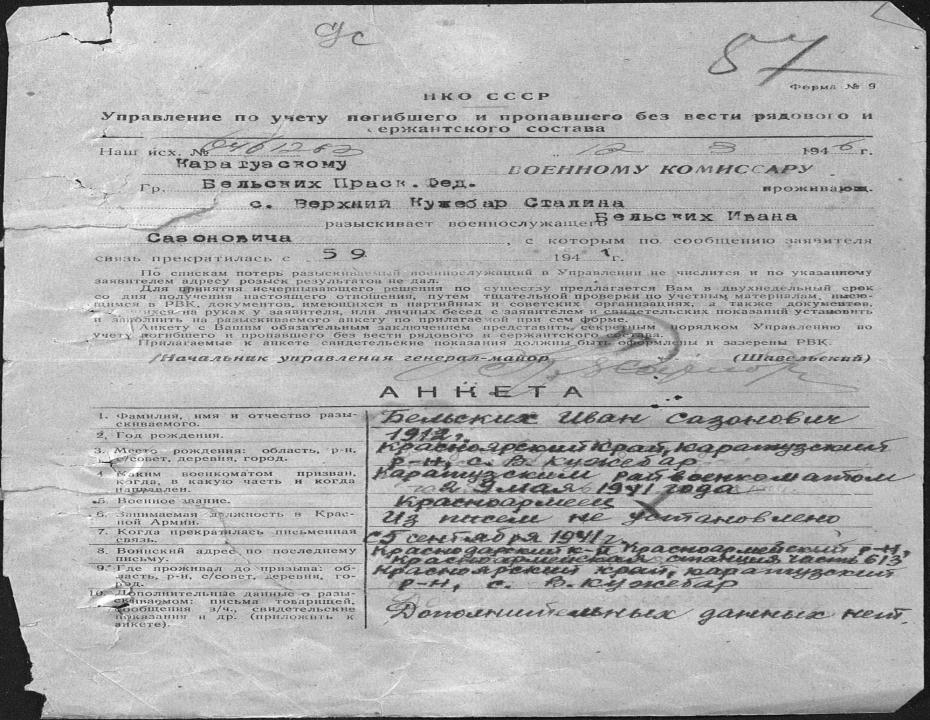 87
Форма № 9
НКО СССР
Управление по учету погибшего и пропавшего без вести рядового и
сержантского состава
Наш исх. № 12 3 1946 г.
Каратузскому ВОЕННОМУ КОМИССАРУ
Гр. Бельских Праск. Фед. проживающ.
с. Верхний Кужебар Сталина
разыскивает военнослужащего Бельских Ивана
Сазоновича, с которым по сообщению заявителя
связь прекратилась с 5 9 1941 г.
По спискам потерь разыскиваемый военнослужащий в Управлении не числится и по указанному
заявителем адресу розыск результатов не дал.
Для принятия исчерпывающего решения по существу предлагается Вам в двухнедельный срок
со дня получения настоящего отношения, путем тщательной проверки по учетным материалам, имею-
щимся в РВК, документов, имеющихся в партийных и советских организациях, а также документов,
имеющихся на руках у заявителя, или личных бесед с заявителем и свидетельских показаний установить
и заполнить на разыскиваемого анкету по прилагаемой при сем форме.
Анкету с Вашим обязательным заключением представить секретным порядком Управлению по
учету погибшего и пропавшего без вести рядового и сержантского состава.
Прилагаемые к анкете свидетельские показания должны быть оформлены и заверены РВК.
Начальник управления генерал-майор (Шавельский)
АНКЕТА
1. Фамилия, имя и отчество разы-
скиваемого.
Бельских Иван Сазонович
2. Год рождения.
1912 г.
3. Место рождения: область, р-н,
с/совет, деревня, город.
Красноярский край, каратузский
р-н, с. В. Кужебар
4. Каким военкоматом призван,
когда, в какую часть и когда
направлен.
Каратузским райвоенкоматом
9 мая 1941 года
5. Военное звание.
Красноармеец
6. Занимаемая должность в Крас-
ной Армии.
Из писем не установлено
7. Когда прекратилась письменная
связь.
С 5 сентября 1941 г.
8. Воинский адрес по последнему
письму.
Краснодарский к-й Красноармейский р-н,
Красноармейская станция часть 613
9. Где проживал до призыва: об-
ласть, р-н, с/совет, деревня, го-
род.
Красноярский край, каратузский
р-н, с. В. Кужебар
10. Дополнительные данные о разы-
скиваемом: письма товарищей,
сообщения в/ч., свидетельские
показания и др. (приложить к
анкете).
Дополнительных данных нет.